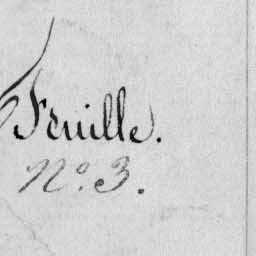 Feuille.
Nº. 3.